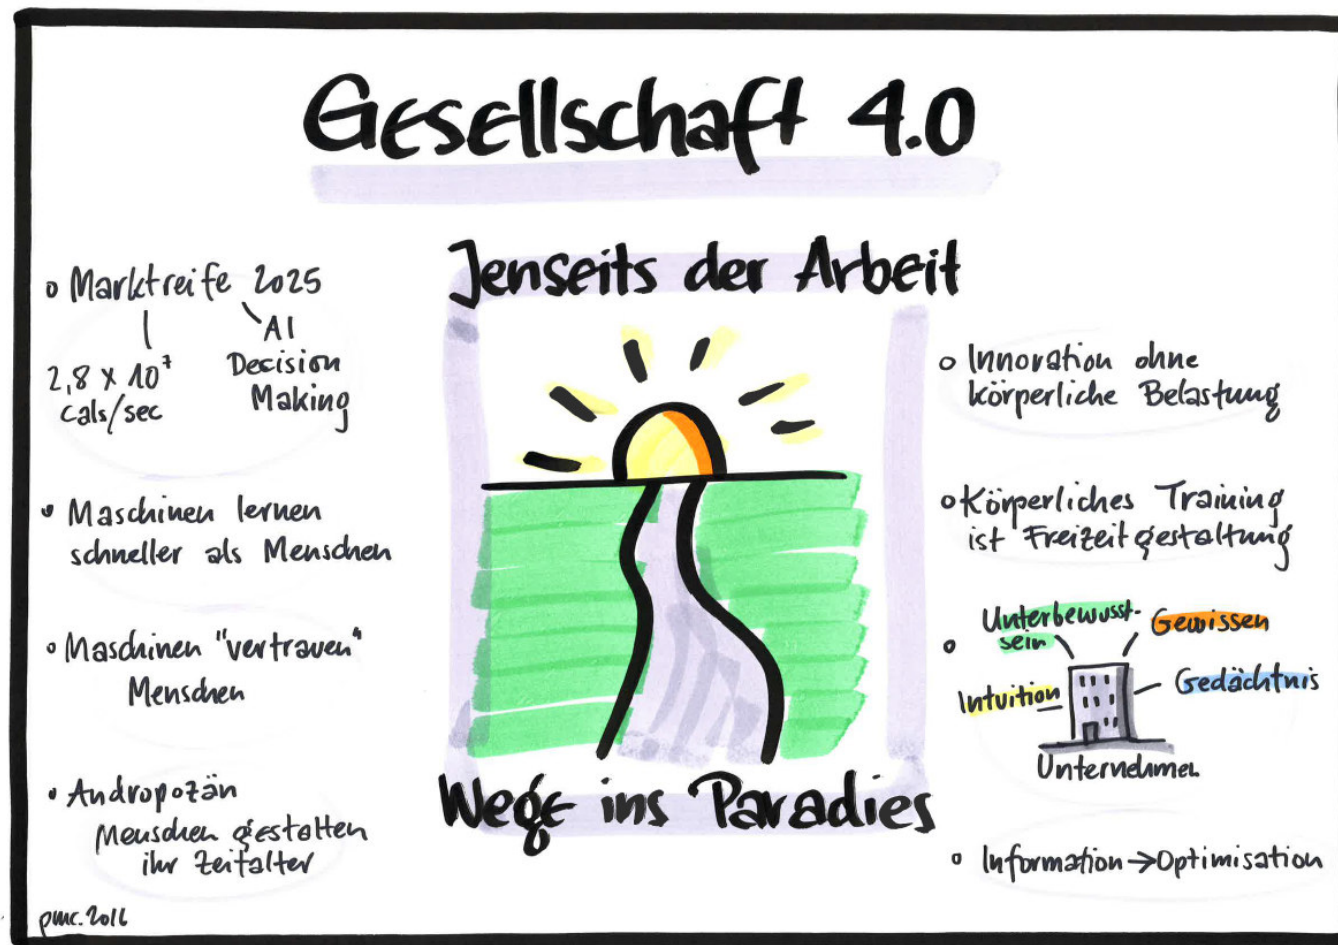 Gesellschaft 4.0
Jenseits der Arbeit
Wege ins Paradies
o Marktreife 2025
2,8 x 10⁷
cals/sec
AI
Decision
Making
• Maschinen lernen
schneller als Menschen
• Maschinen "vertrauen"
Menschen
• Andropozän
Menschen gestalten
ihr Zeitalter
o Innovation ohne
körperliche Belastung
o Körperliches Training
ist Freizeitgestaltung
o Unterbewusst-
sein
Gewissen
Intuition
Gedächtnis
Unternehmen
o Information → Optimisation
pmc. 2016